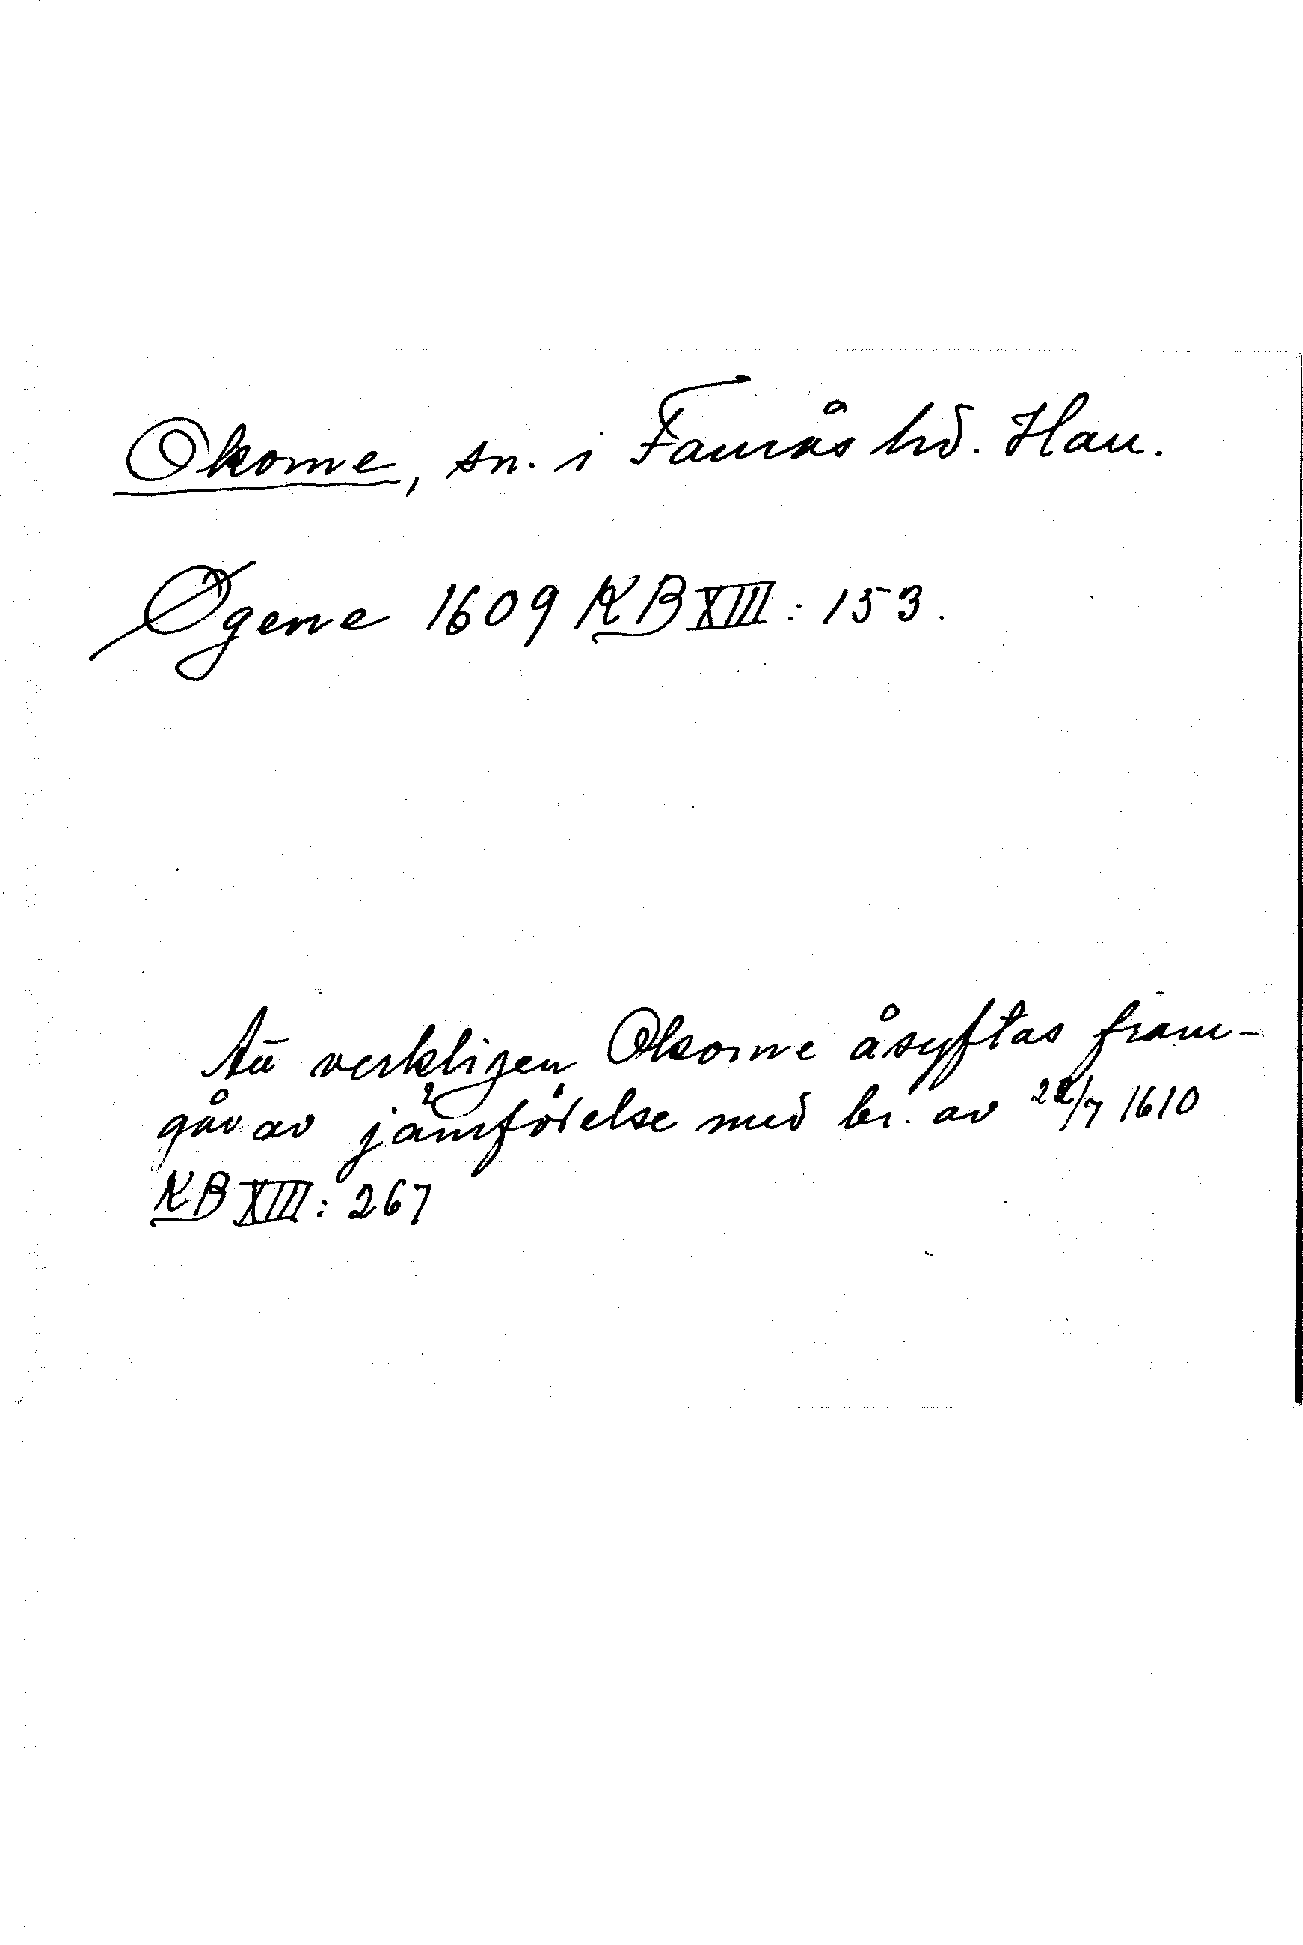 Okome, sn. i Faurås hd. Hall.
Øgeme 1609 KB XIII: 153.
Att verkligen Okome åsyftas fram-
går av jämförelse med br. av /7 1610
KB XIII: 267